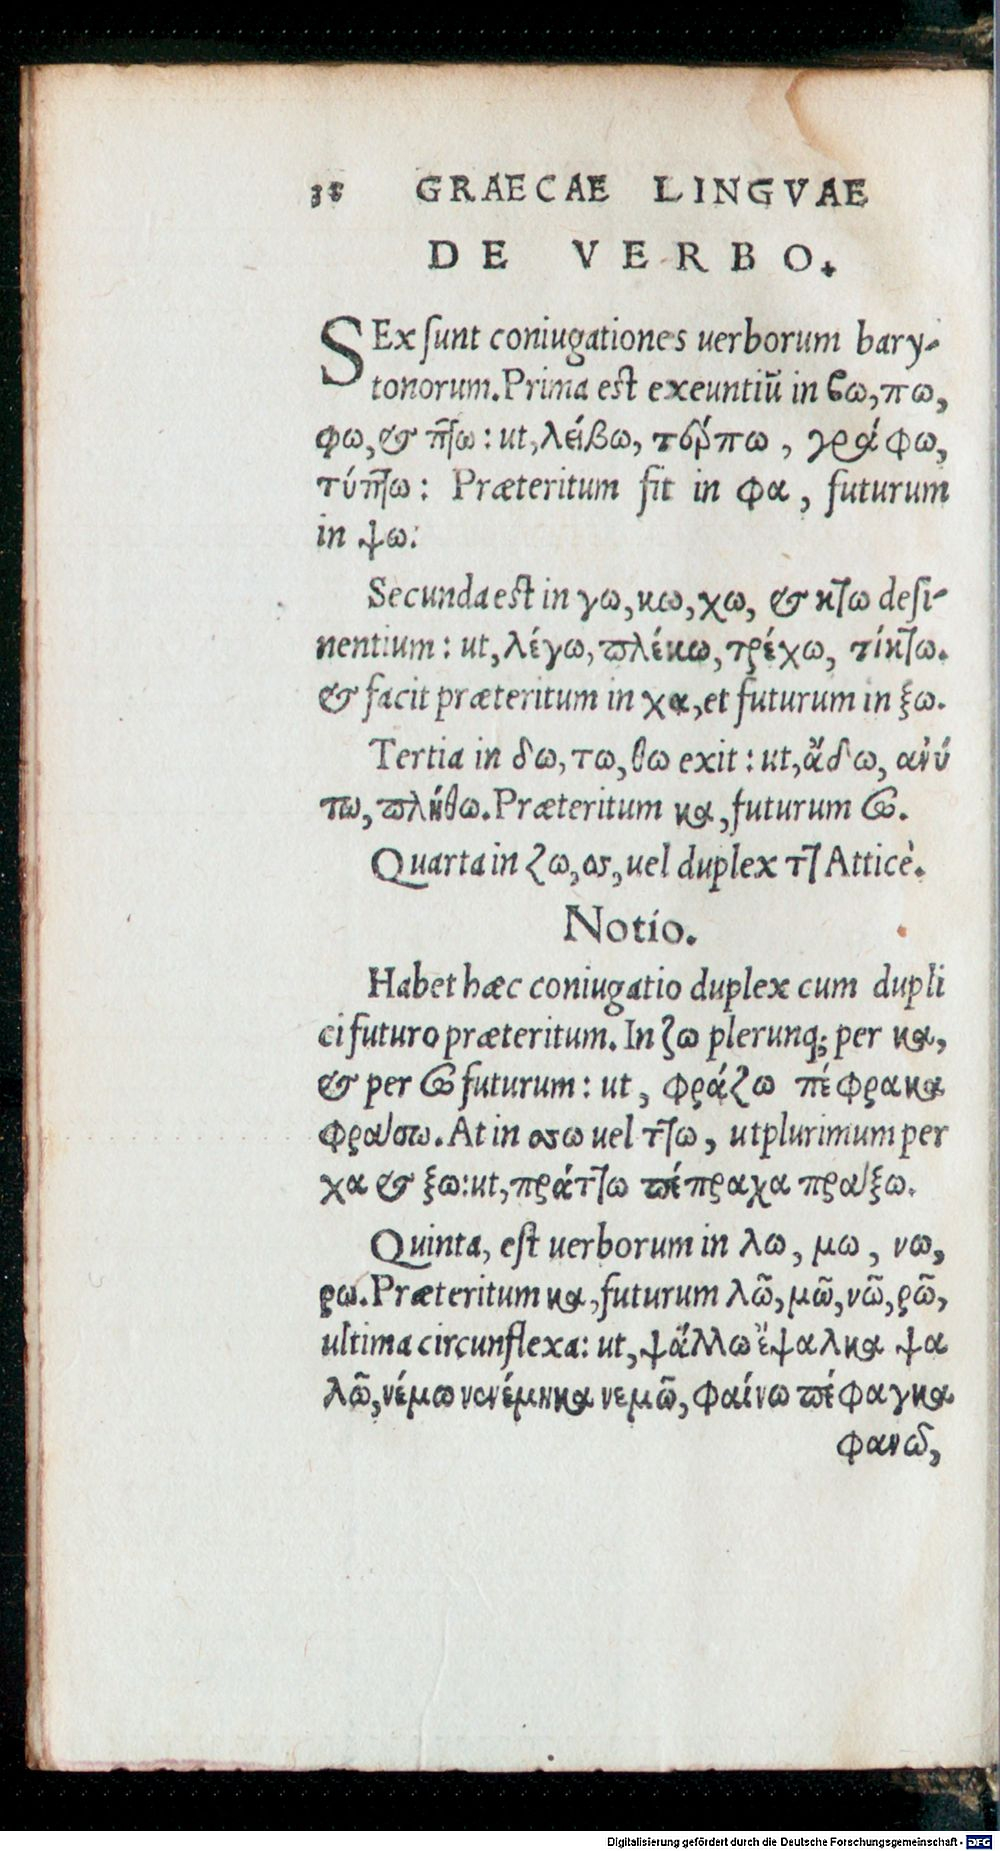 38 GRAECAE LINGVAE
DE VERBO.
SEx sunt coniugationes uerborum bary-
tonorum. Prima est exeuntiũ in βω, πω,
φω, & πτω: ut, λείβω, τέρπω, γράφω,
τύπτω: Præteritum fit in φα, futurum
in ψω.
Secunda est in γω, κω, χω, & κτω desi-
nentium: ut, λέγω, πλέκω, τρέχω, τίκτω.
& facit præteritum in χα, et futurum in ξω.
Tertia in δω, τω, θω exit: ut, ἄδω, ανύ
τω, πλήθω. Præteritum κα, futurum σω.
Quarta in ζω, σσ, uel duplex ττ Atticè.
Notio.
Habet hæc coniugatio duplex cum dupli
ci futuro præteritum. In ζω plerunq; per κα,
& per σω futurum: ut, φράζω πέφρακα
φράσω. At in σσω uel ττω, utplurimum per
χα & ξω: ut, πράττω πέπραχα πράξω.
Quinta, est uerborum in λω, μω, νω,
ρω. Præteritum κα, futurum λῶ, μῶ, νῶ, ρῶ,
ultima circunflexa: ut, ψάλλω ἔψαλκα ψα
λῶ, νέμω νενέμηκα νεμῶ, φαίνω πέφαγκα
φανῶ,
Digitalisierung gefördert durch die Deutsche Forschungsgemeinschaft - DFG